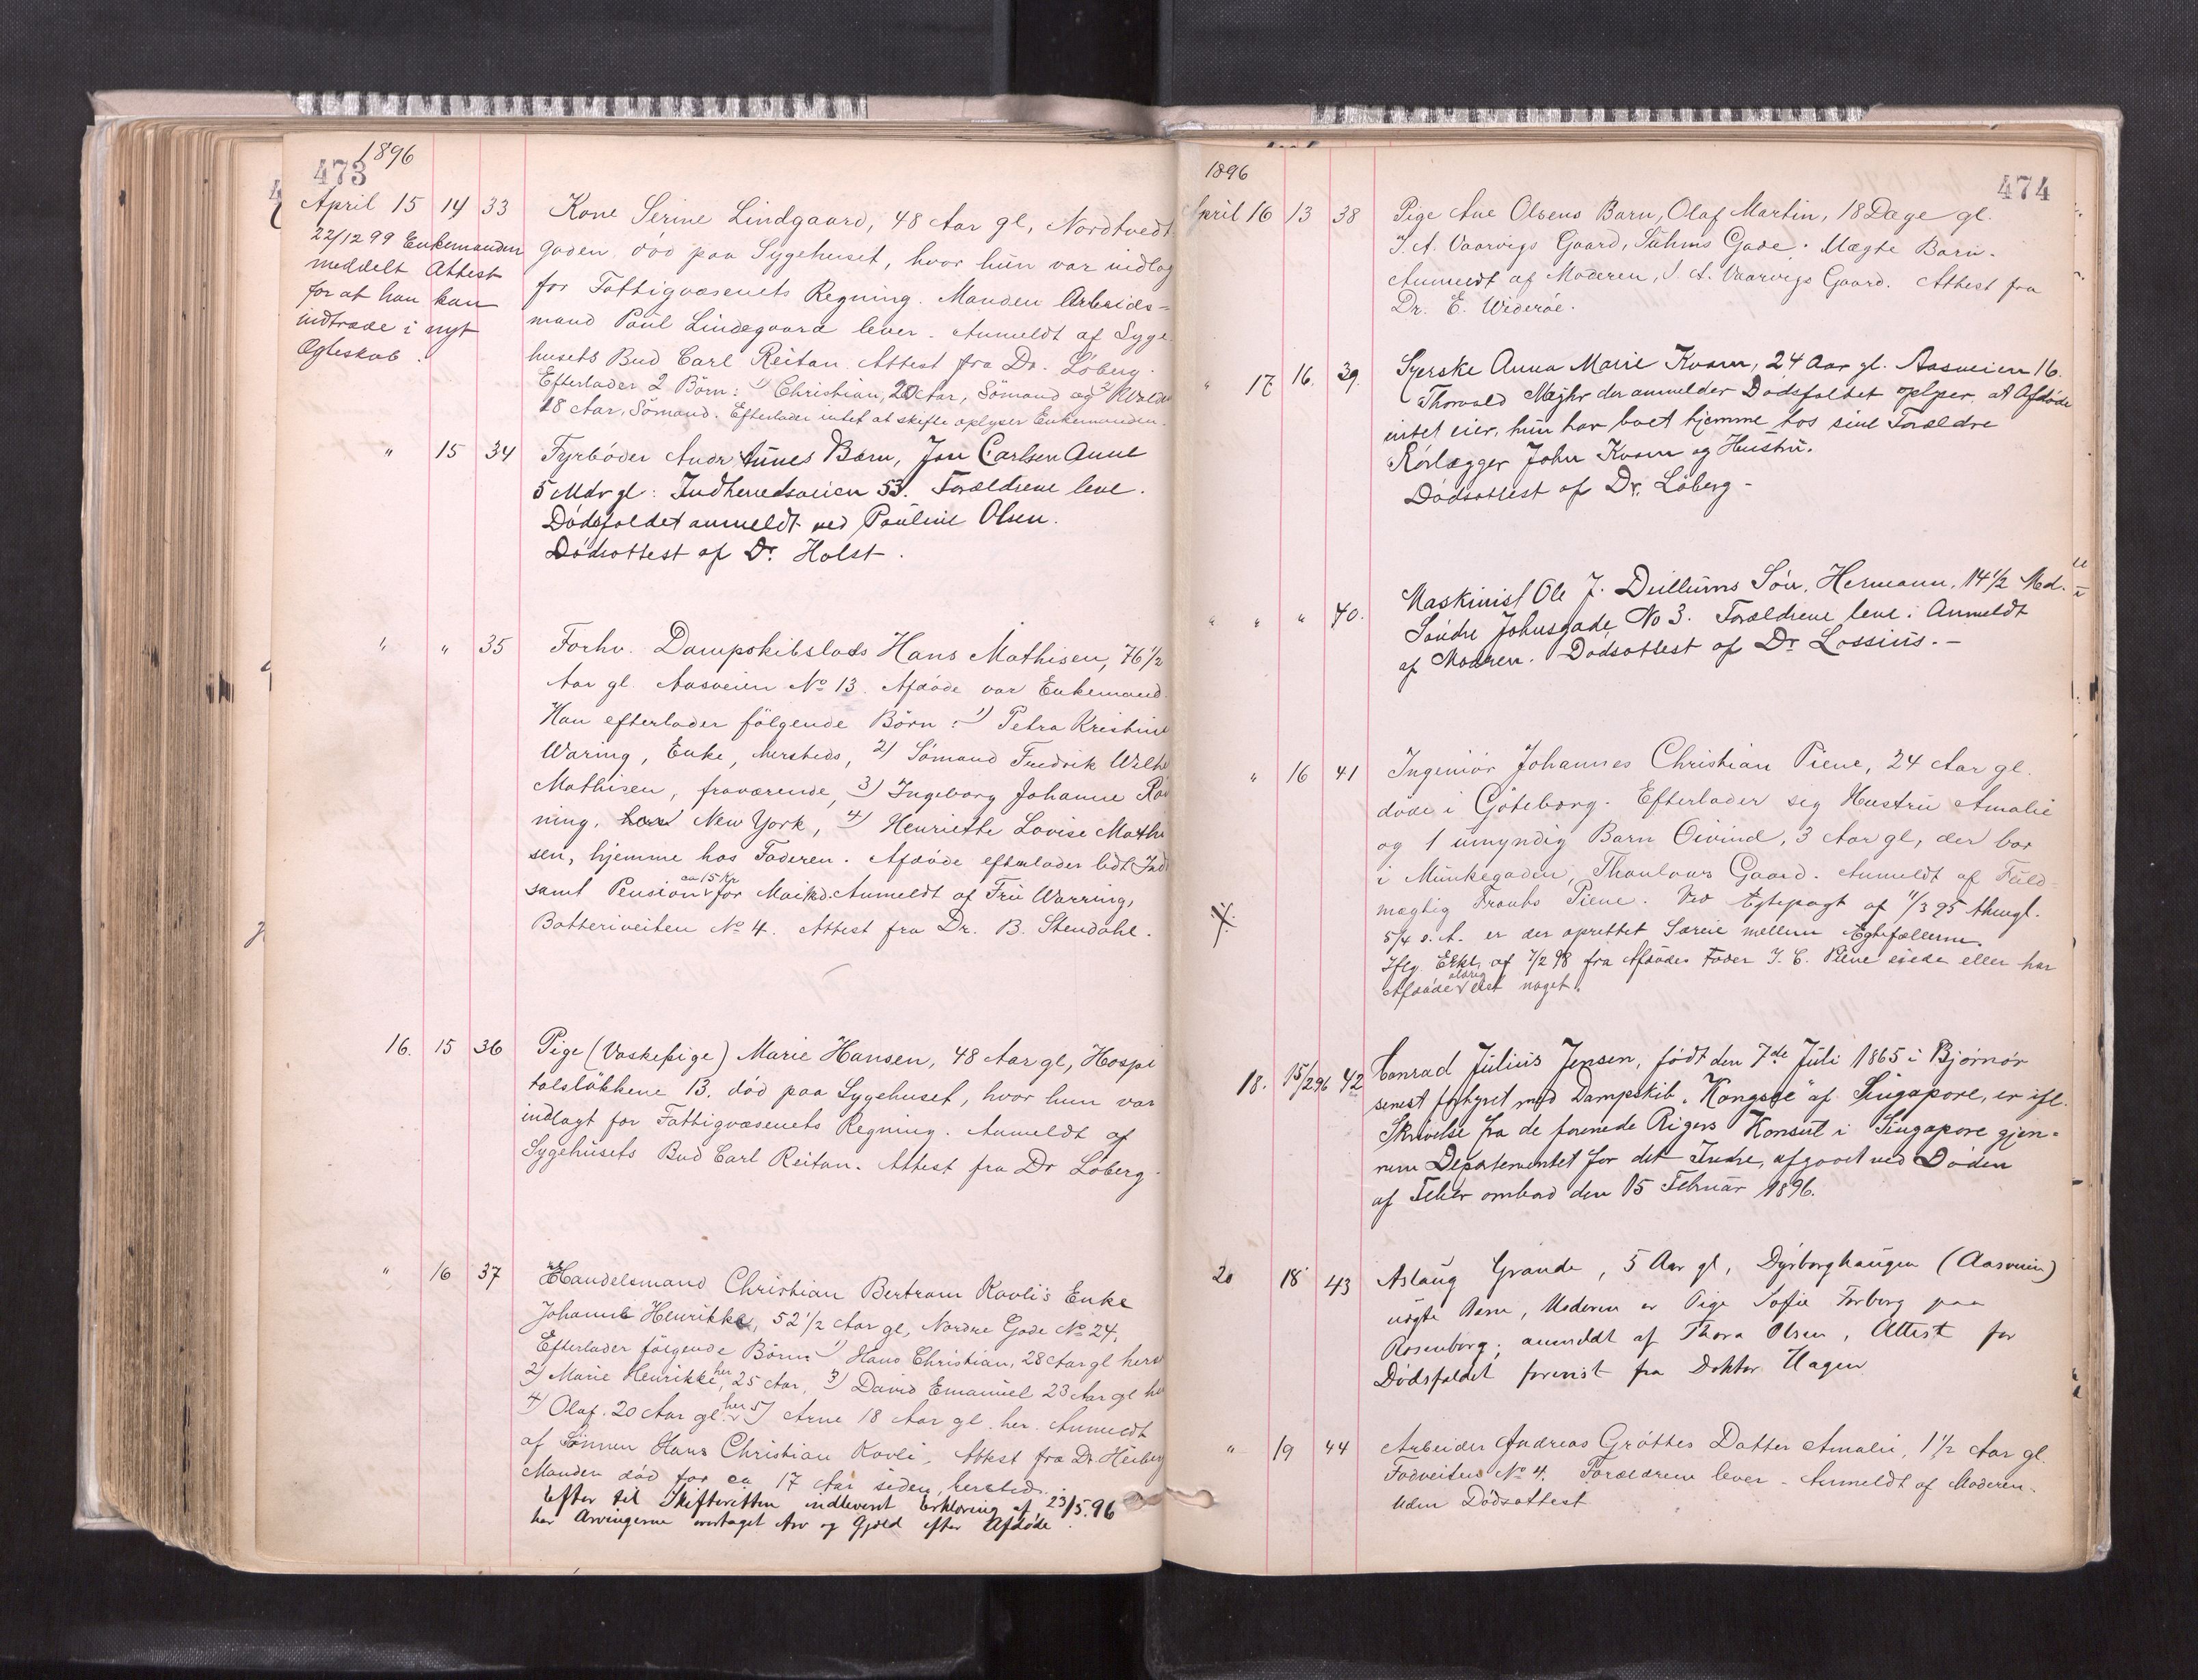 1896
473
April 15 14 33 Kone Serine Lindgaard, 48 Aar gl, Nordtvedt
22/12 99 Enkemanden
meddelt Attest
for at han kan
indtræde i nyt
Ægteskab.
gaden. død paa Sygehuset, hvor hun var indlag
for Fattigvæsenets Regning. Manden Arbeids-
mand Paul Lindegaard lever. Anmeldt af Syge
husets Bud Carl Reitan. Attest fra Dr. Löberg.
Efterlader 2 Börn: 1) Christian, 20 Aar, Sömand og 2)
18 Aar, Sömand. Efterlader intet at skifte oplyser Enkemanden.
" 15 34 Fyrböder Andr Aunes Barn, Jon Carlsen Aune
5 Mdr gl: Indherredsveien 53. Forældrene leve.
Dödsfaldet anmeldt ved Pauline Olsen.
Dödsattest af Dr. Holst.
" " 35 Forhv. Dampskibslods Hans Mathisen, 76 1/2
Aar gl. Aasveien No 13. Afdöde var Enkemand.
Han efterlader fölgende Börn: 1) Petra Kristine
Waring, Enke, hersteds, 2) Sömand Fredrik Wilhe
Mathisen, fraværende, 3) Ingeborg Johanne
ning, New York, 4) Henriette Lovise Mathi
sen, hjemme hos Faderen. Afdöde efterlader lidt Ind
samt Pension ca 15 Kr for Maaned. Anmeldt af Fru Warring,
Batteriveiten No 4. Attest fra Dr. B. Stendahl.
16. 15 36 Pige (Vaskepige) Marie Hansen, 48 Aar gl, Hospi
talslökkene 13. död paa Sygehuset, hvor hun var
indlagt for Fattigvæsenets Regning. Anmeldt af
Sygehusets Bud Carl Reitan. Attest fra Dr Löberg.
" 16 37 Handelsmand Christian Bertram Kavli's Enke
Johanne Henrikke, 52 1/2 Aar gl, Nordre Gade No 24.
Efterlader fölgende Börn: 1) Hans Christian, 28 Aar gl herst
2) Marie Henrikke, her 25 Aar, 3) David Emanuel 23 Aar gl he
4) Olaf. 20 Aar gl. her 5) Arne 18 Aar gl. her. Anmeldt
af Sönnen Hans Christian Kavli, Attest fra Dr. Heiberg
Manden död for ca 17 Aar siden, hersteds.
Efter til Skifteretten indleveret Erklæring af 23/5.96
har Arvingerne overtaget Arv og Gjæld efter Afdöde.
1896
474
April 16 13 38 Pige Ane Olsens Barn, Olaf Martin, 18 Dage gl.
I. A. Vaarvigs Gaard, Suhms Gade. Uægte Barn.
Anmeldt af Moderen, I. A. Vaarvigs Gaard. Attest fra
Dr. E. Wideröe.
" 17 16. 39. Syerske Anna Marie Kvam, 24 Aar gl. Aasveien 16.
Thorvald der anmelder Dödsfaldet oplyser, at Afdöde
intet eier, hun har boet hjemme hos sine Forældre
Rörlægger John Kvam og Hustru.
Dödsattest af Dr. Löberg -
" " " 40. Maskinist Ole J. Duillums Sön, Hermann, 14 1/2 Md.
Söndre Johnsgade No 3. Forældrene leve. Anmeldt
af Moderen. Dödsattest af Dr Lossius. -
" 16 41 Ingeniör Johannes Christian Piene, 24 Aar gl.
döde i Göteborg. Efterlader sig Hustru Amalie
og 1 umyndig Barn Öivind, 3 Aar gl, der bor
i Munkegaden, Thaulows Gaard. Anmeldt af Fuld-
mægtig Piene. Ved Ægtepagt af 11/3 95 thingl.
5/4 s. A. er der oprettet Særeie mellem Ægtefællerne.
Iflg. Erkl. af 7/2 98 fra Afdödes Fader I. C. Piene eiede eller har
Afdöde aldrig eiet noget.
18. 15/2 96 42 Conrad Julius Jensen, födt den 7de Juli 1865 i Björnör
senest forhyret med Dampskib "Kongsee" af Singapore, er ifl.
Skrivelse fra de forenede Rigers Konsul i Singapore gjen-
nem Departementet for det Indre, afgaaet ved Döden
af Feber ombord den 15 Februar 1896.
20 18 43 Aslaug Grande, 5 Aar gl, Dyrborghaugen (Aasveien)
uægte Barn, Moderen er Pige Sofie Forberg paa
Rosenborg; anmeldt af Thora Olsen, Attest for
Dödsfaldet forevist fra Doktor Hagen
" 19 44 Arbeider Andreas Gröttes Datter Amalie, 1 1/2 Aar gl.
Fodveiten No 4. Forældrene lever - Anmeldt af Moderen.
uden Dödsattest